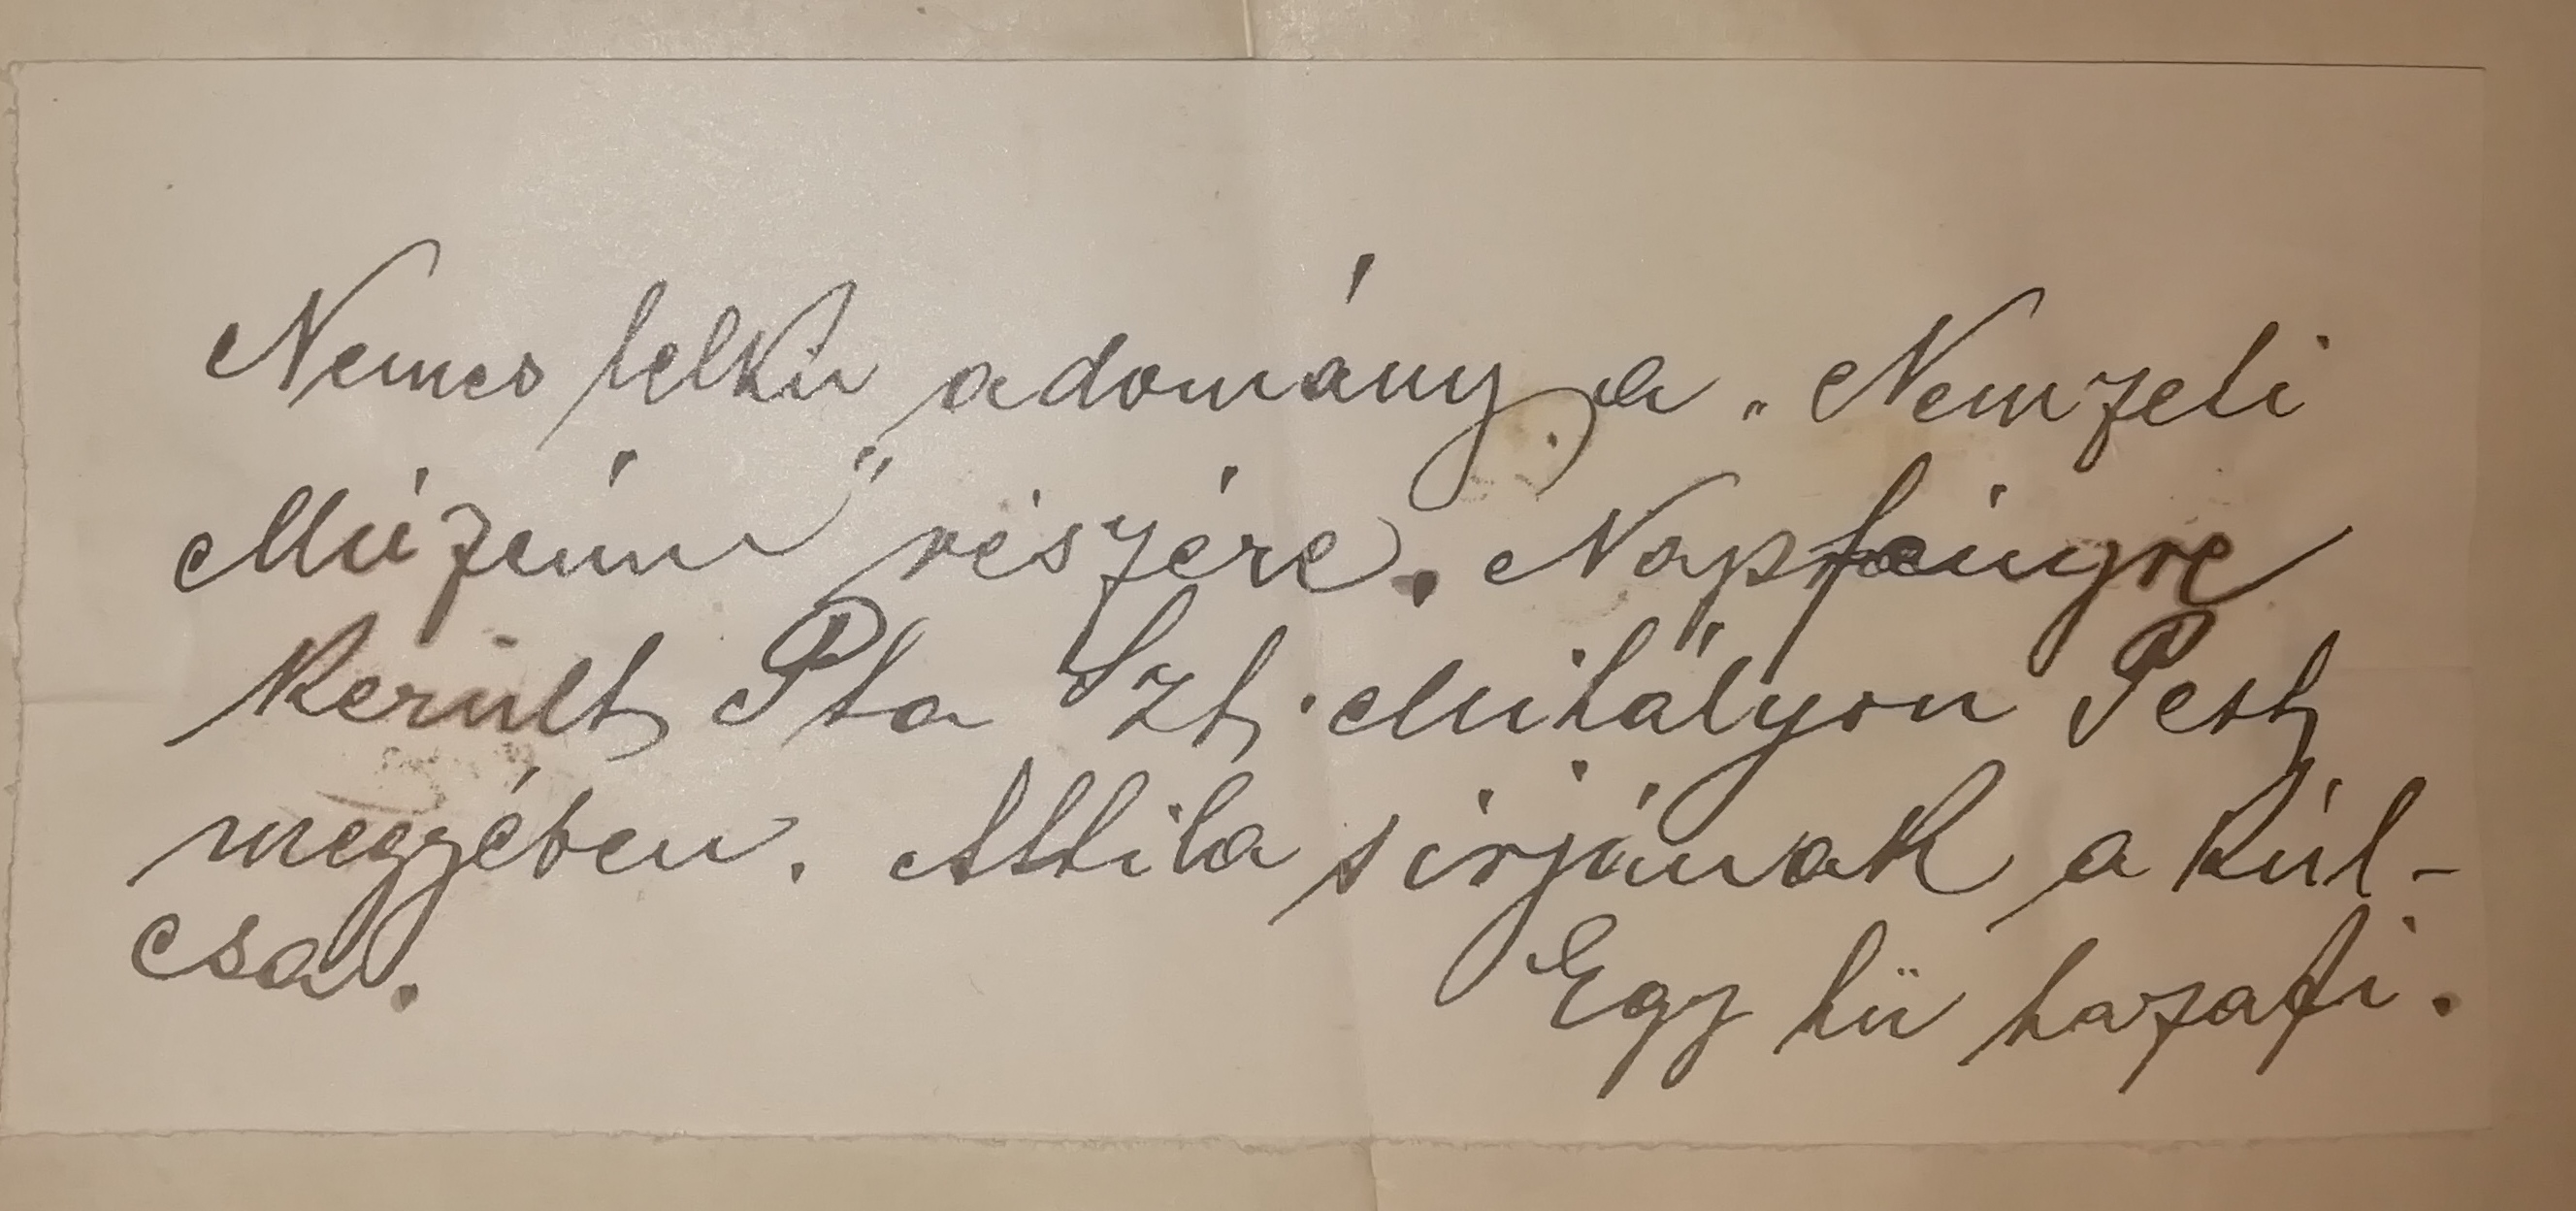 Nemes lelkü adomány a „Nemzeti
Múzeúm" részére. Napfényre
került Pta Szt. Mihályon Pest
megyében. Attila sírjának a kúl-
csa.
Egy hü hazafi.